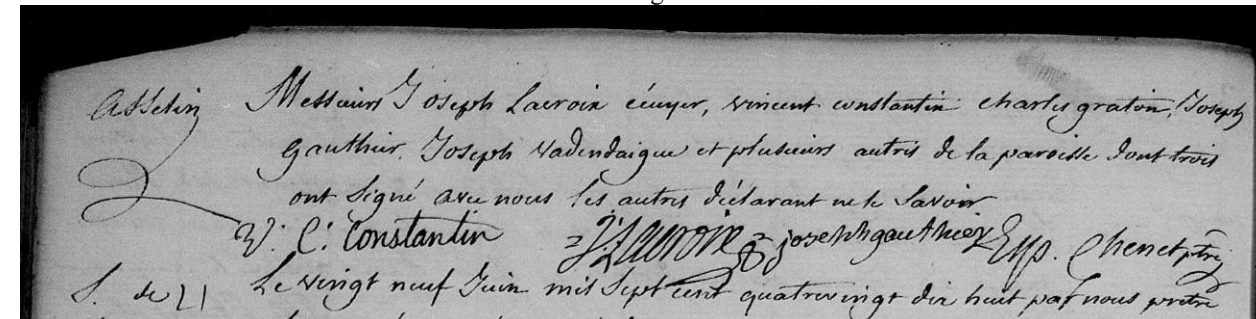 asselin Messieurs Joseph Lacroix écuyer, vincent constantin charles graton, Joseph
gauthier, Joseph vadendaigue et plusieurs autres de la paroisse dont trois
ont signé avec nous les autres déclarant ne le savoir
V. C. Constantin J. Lacroix josephh gauthier Chenet ptre
S. de 21 Le vingt neuf Juin mil sept cent quatrevingt dix huit par nous pretre